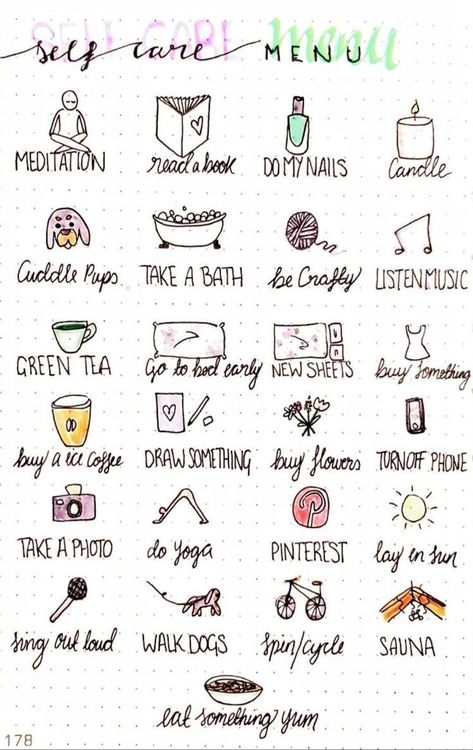 self care MENU
MEDITATION read a book DO MY NAILS Candle
Cuddle Pups TAKE A BATH be Crafty LISTEN MUSIC
GREEN TEA Go to bed early NEW SHEETS buy something
buy a ice coffee DRAW SOMETHING buy flowers TURN OFF PHONE
TAKE A PHOTO do yoga PINTEREST lay in sun
sing out loud WALK DOGS spin/cycle SAUNA
eat something yum
178